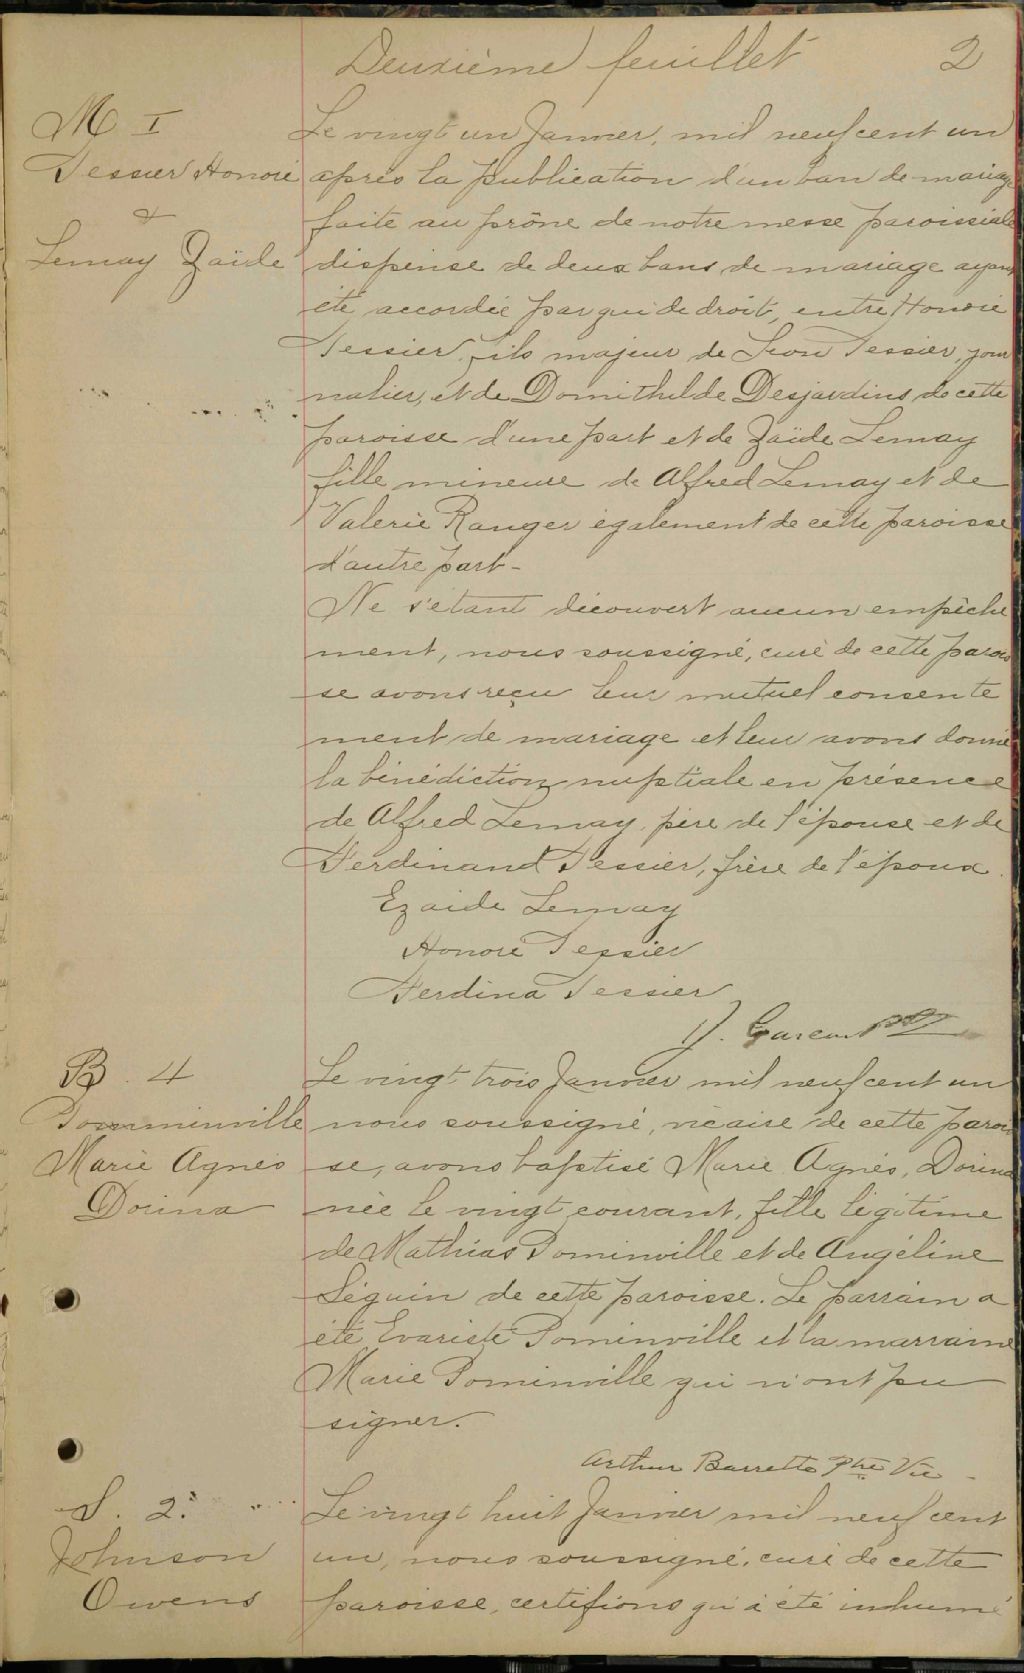 Deuxième feuillet 2
M I
Tessier Honoré
&
Lemay Zaïde
Le vingt un Janvier, mil neuf cent un
après la publication d'un ban de mariage
faite au prône de notre messe paroissiale
dispense de deux bans de mariage ayant
été accordée par qui de droit, entre Honoré
Tessier, fils majeur de Léon Tessier, jour
nalier, et de Domithilde Desjardins de cette
paroisse d'une part et de Zaïde Lemay
fille mineure de Alfred Lemay et de
Valerie Ranger également de cette paroisse
d'autre part -
Ne s'étant découvert aucun empêche
ment, nous soussigné, curé de cette parois
se avons reçu leur mutuel consente
ment de mariage et leur avons donné
la bénédiction nuptiale en présence
de Alfred Lemay, père de l'épouse et de
Ferdinand Tessier, frère de l'époux.
Ezaide Lemay
Honore Tessier
Ferdina Tessier
ptre
B. 4
Pomminville
Marie Agnès
Dorina
Le vingt trois Janvier mil neuf cent un
nous soussigné, vicaire de cette parois
se, avons baptisé Marie, Agnès, Dorina
née le vingt courant, fille légitime
de Mathias Pominville et de Angéline
Séguin de cette paroisse. Le parrain a
été Evariste Pominville et la marraine
Marie Pominville qui n'ont pu
signer.
Arthur Barrette Ptre Vic -
S. 2.
Johnson
Owens
Le vingt huit Janvier mil neuf cent
un, nous soussigné, curé de cette
paroisse, certifions qu'a été inhumé